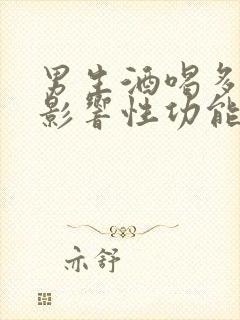 男生酒喝多
影响性功能
亦舒